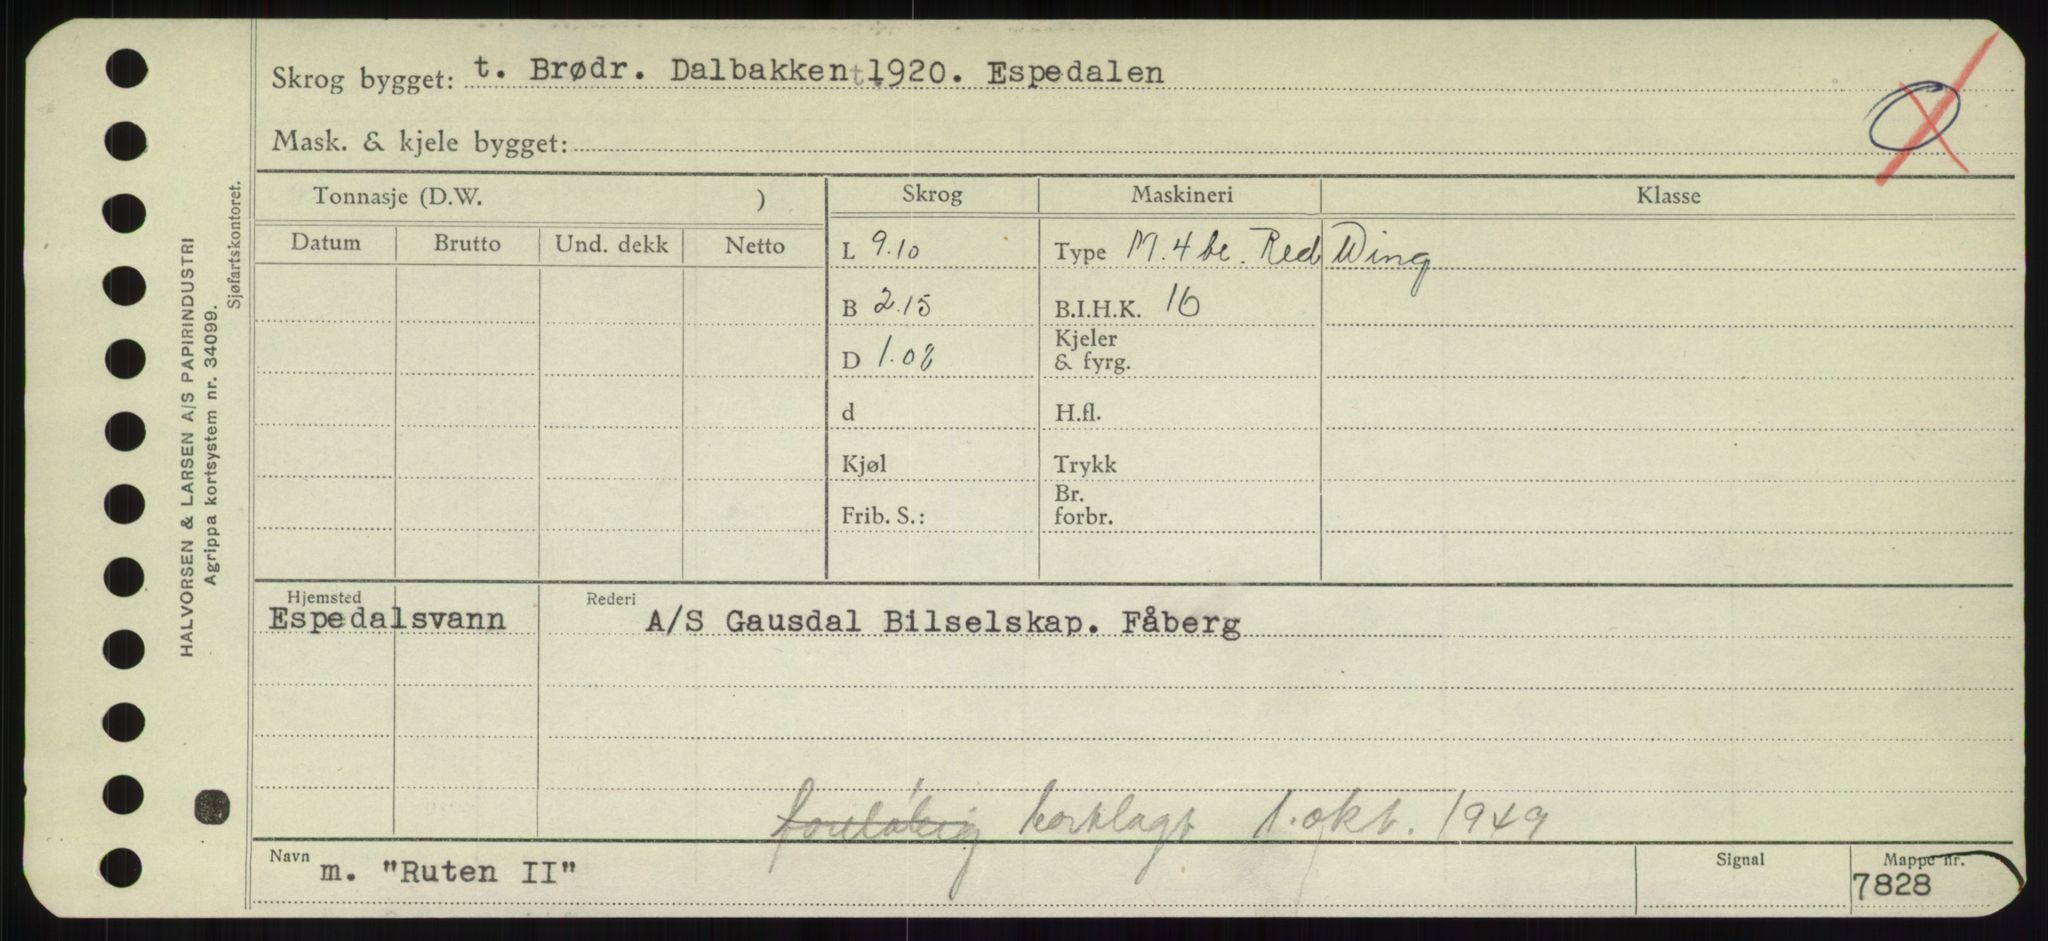 Skrog bygget: t. Brødr. Dalbakken t 1920. Espedalen
Mask. & kjele bygget:
Tonnasje (D.W. )
Skrog
Maskineri
Klasse
Datum
Brutto
Und. dekk
Netto
L 9.10
Type M. 4 be. Red Wing
B 2.15
B.I.H.K. 16
D 1.08
Kjeler
& fyrg.
d
H.fl.
Kjøl
Trykk
Frib. S.:
Br.
forbr.
Hjemsted
Espedalsvann
Rederi
A/S Gausdal Bilselskap. Fåberg
foreløbig bortlagt 1. okt. 1949
Navn
m. "Ruten II"
Signal
Mappe nr.
7828
HALVORSEN & LARSEN A/S PAPIRINDUSTRI
Agrippa kortsystem nr. 34099.
Sjøfartskontoret.